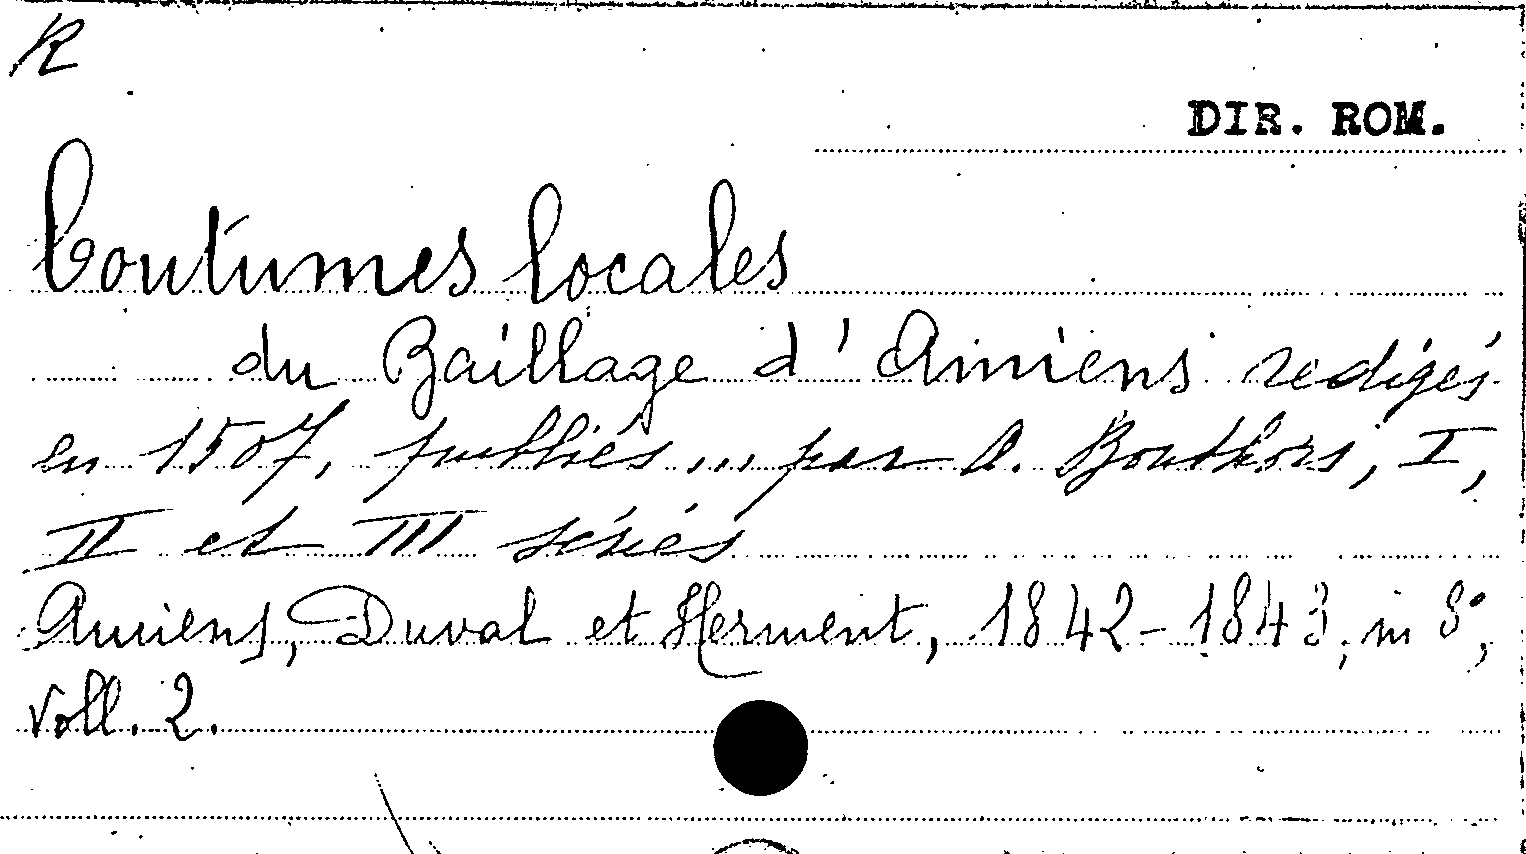 R
DIR. ROM.
Coutumes locales
du Baillage d'Amiens redigés
en 1507, publiés ... par A. Bouthors, I,
II et III sériés
Amiens, Duval et Herment, 1842-1843, in 8°,
voll. 2.